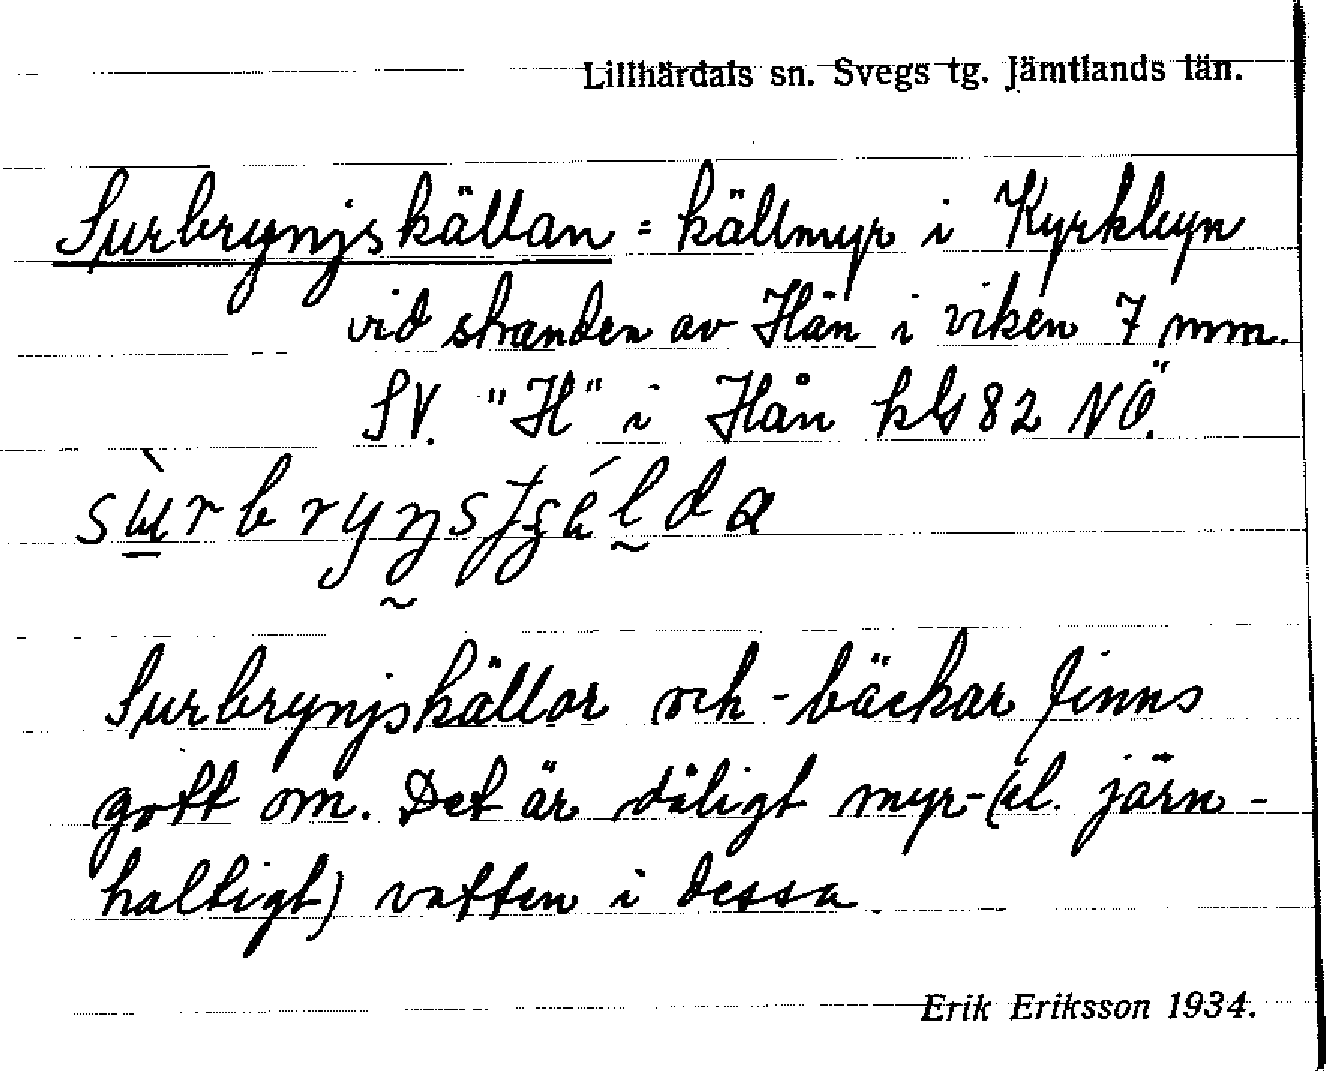 Lillhärdals sn. Svegs tg. Jämtlands län.
Surbrynjskällan = källmyr i Kyrkbyn
vid stranden av Hån i viken 7 mm.
SV. "H" i Hån kbl 82 NÖ.
Surbrynjskällor och -bäckar finns
gott om. Det är dåligt myr- (el. järn-
haltigt) vatten i dessa
Erik Eriksson 1934.